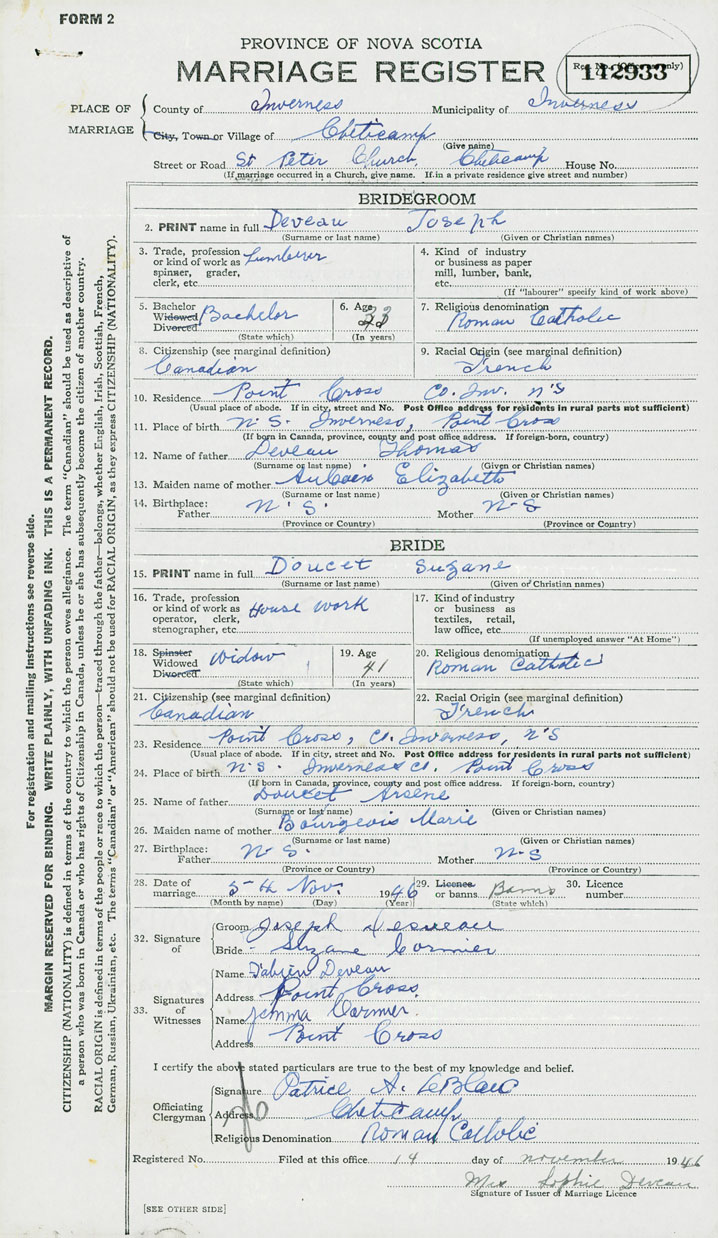 FORM 2
PROVINCE OF NOVA SCOTIA
MARRIAGE REGISTER
Reg. No. (Office use only)
142933
PLACE OF MARRIAGE
County of Inverness Municipality of Inverness
City, Town or Village of Cheticamp
(Give name)
Street or Road St Peter Church, Cheticamp House No.
(If marriage occurred in a Church, give name. If in a private residence give street and number)
BRIDEGROOM
2. PRINT name in full Deveau Joseph
(Surname or last name) (Given or Christian names)
3. Trade, profession or kind of work as spinner, grader, clerk, etc. Lumberer
4. Kind of industry or business as paper mill, lumber, bank, etc.
(If "labourer" specify kind of work above)
5. Bachelor Widowed Divorced Bachelor
(State which)
6. Age
(In years)
7. Religious denomination Roman Catholic
8. Citizenship (see marginal definition) Canadian
9. Racial Origin (see marginal definition) French
10. Residence Point Cross Co. Inv. N'S
(Usual place of abode. If in city, street and No. Post Office address for residents in rural parts not sufficient)
11. Place of birth N.S. Inverness, Point Cross
(If born in Canada, province, county and post office address. If foreign-born, country)
12. Name of father Deveau Thomas
(Surname or last name) (Given or Christian names)
13. Maiden name of mother AuCoin Elizabeth
(Surname or last name) (Given or Christian names)
14. Birthplace: Father N.S. Mother N-S
(Province or Country) (Province or Country)
BRIDE
15. PRINT name in full Doucet Suzane
(Surname or last name) (Given or Christian names)
16. Trade, profession or kind of work as operator, clerk, stenographer, etc. House Work
17. Kind of industry or business as textiles, retail, law office, etc.
(If unemployed answer "At Home")
18. Spinster Widowed Divorced Widow
(State which)
19. Age 41
(In years)
20. Religious denomination Roman Catholic
21. Citizenship (see marginal definition) Canadian
22. Racial Origin (see marginal definition) French
23. Residence Point Cross, Co. Inverness, N'S
(Usual place of abode. If in city, street and No. Post Office address for residents in rural parts not sufficient)
24. Place of birth N.S. Inverness Co. Point Cross
(If born in Canada, province, county and post office address. If foreign-born, country)
25. Name of father Doucet Arsene
(Surname or last name) (Given or Christian names)
26. Maiden name of mother Bourgeois Marie
(Surname or last name) (Given or Christian names)
27. Birthplace: Father N-S. Mother N-S
(Province or Country) (Province or Country)
28. Date of marriage 5th Nov. 1946
(Month by name) (Day) (Year)
29. Licence or banns Banns
(State which)
30. Licence number
32. Signature of
Groom Joseph Desveau
Bride Suzane Cormier
33. Signatures of Witnesses
Name Fabien Deveau
Address Point Cross
Name Jemma Cormier
Address Point Cross
I certify the above stated particulars are true to the best of my knowledge and belief.
Officiating Clergyman
Signature Patrice A. LeBlanc
Address Cheticamp
Religious Denomination Roman Catholic
Registered No. Filed at this office 14 day of November 1946
Mrs Sophie Deveau
Signature of Issuer of Marriage Licence
[SEE OTHER SIDE]
For registration and mailing instructions see reverse side.
MARGIN RESERVED FOR BINDING. WRITE PLAINLY, WITH UNFADING INK. THIS IS A PERMANENT RECORD.
CITIZENSHIP (NATIONALITY) is defined in terms of the country to which the person owes allegiance. The term "Canadian" should be used as descriptive of
a person who was born in Canada or who has rights of Citizenship in Canada, unless he or she has subsequently become the citizen of another country.
RACIAL ORIGIN is defined in terms of the people or race to which the person—traced through the father—belongs, whether English, Irish, Scottish, French,
German, Russian, Ukrainian, etc. The terms "Canadian" or "American" should not be used for RACIAL ORIGIN, as they express CITIZENSHIP (NATIONALITY).